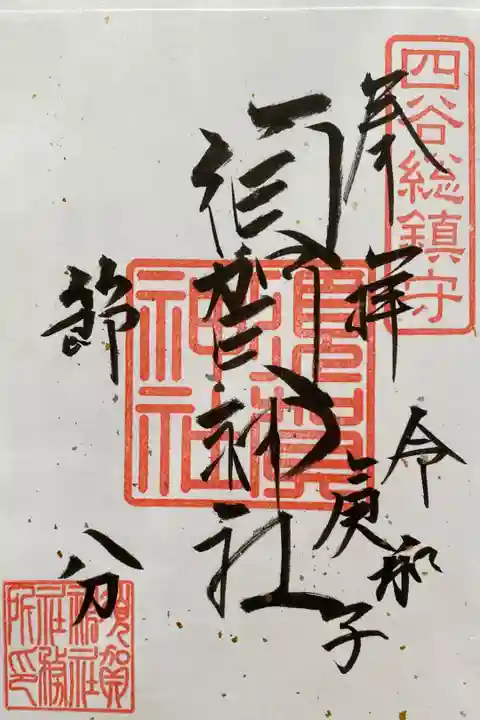 四谷総鎮守
奉拝
令和
庚子
須賀神社
須賀神社
節分
須賀神社社務所印